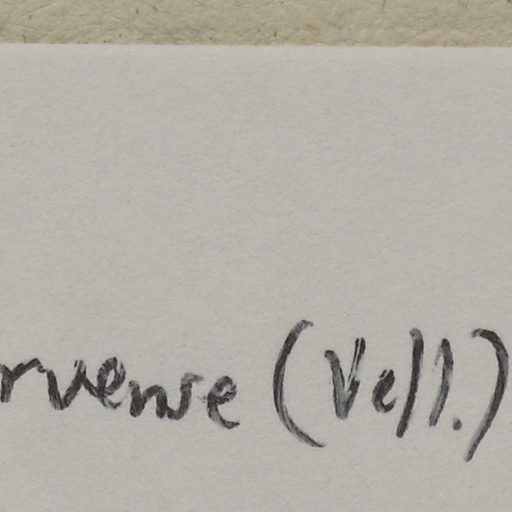 rvense (Vell.)